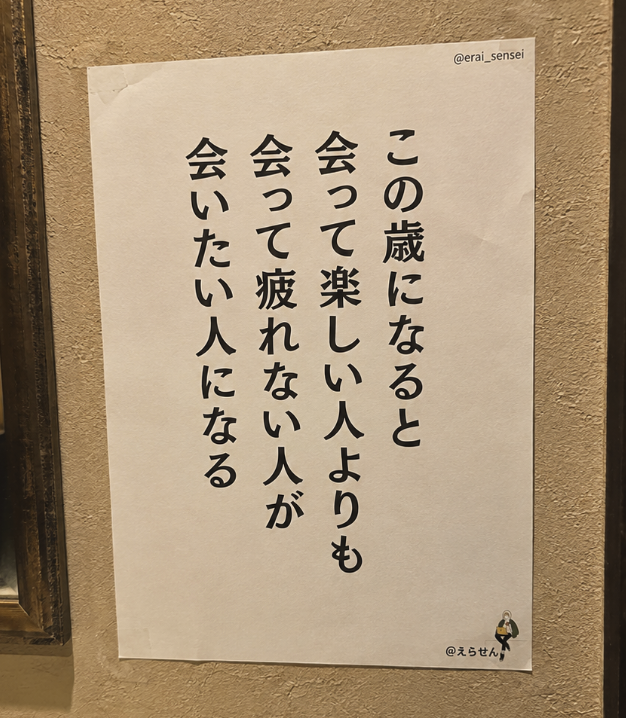 @erai_sensei
この歳になると
会って楽しい人よりも
会って疲れない人が
会いたい人になる
@えらせん